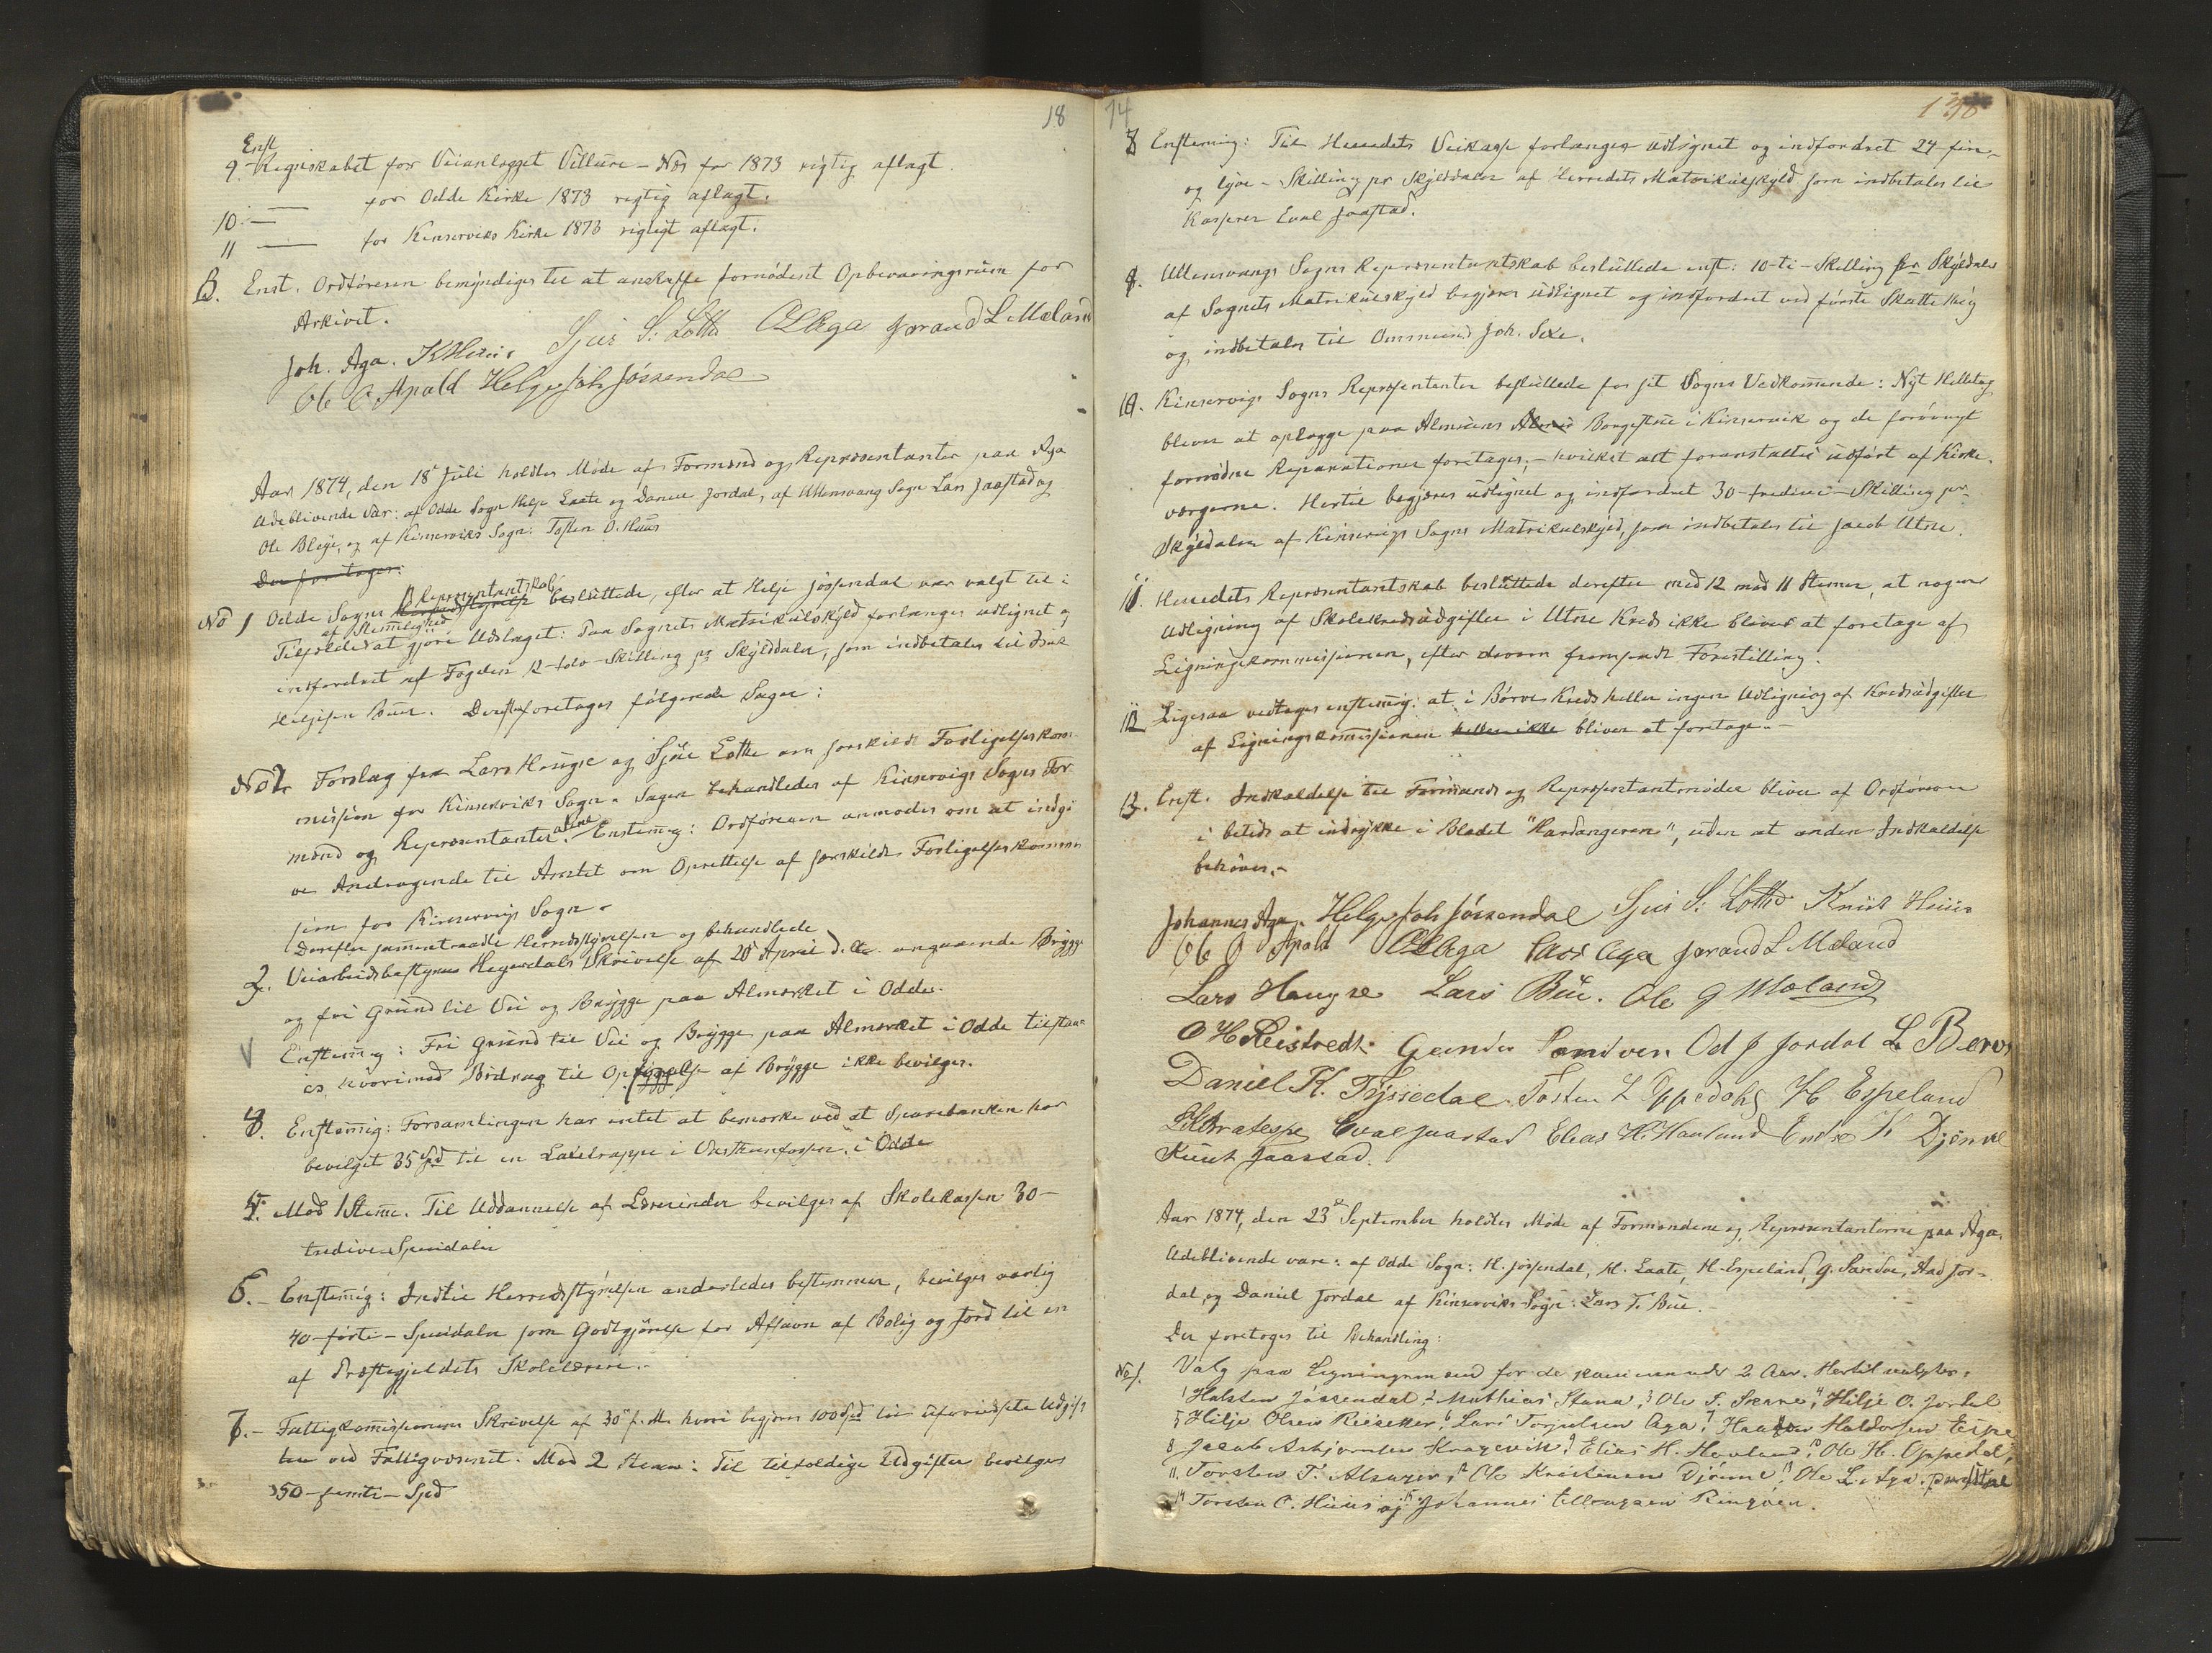 18
Enst
9 Regnskabet for Veianlægget Villure - Næs for 1873 rigtig aflagt
10 — for Odde Kirke 1873 rigtig aflagt.
11 — for Kinserviks Kirke 1873 rigtigt aflagt.
B. Enst. Ordføreren bemyndiges til at anskaffe fornødent Opbevaringsrum for
Arkivet.
Joh. Aga. K Huus Sjur S. Lotthe O L Aga Jorand L Mæland
Ole O Apold Helge Joh Jøssendal
Aar 1874, den 18de Juli holdtes Møde af Formænd og Repræsentanter paa Aga
Udeblivende var: af Odde Sogn Helje Laate og Daniel Jordal, af Ullensvang Sogn Lars Jaastad og
Ole Bleye, og af Kinserviks Sogn: Tosten O. Huus
Der foretages:
Repræsentantskab
No 1 Odde Sogns Herredsstyrelse besluttede, efter at Helje Jøssendal var valgt til i
af Stemmelighed
Tilfælde at gjøre Udslaget: Paa Sognets Matrikulskyld forlanges udlignet og
indfordret af Fogden 12-tolv-Skilling pr Skylddaler, som indbetales til
Heljesen Buer. Derefter foretages følgende Sager:
No 2 Forslag fra Lars Haugse og Sjur Lothe om særskildt Forligelseskom-
mission for Kinserviks Sogn. Sagen behandledes af Kinservigs Sogns For-
mænd og Repræsentanter alene. Enstemmig: Ordføreren anmodes om at indgi-
ve Andragende til Amtet om Oprettelse af særskildt Forligelseskommis-
sion for Kinservigs Sogn.
Derefter sammentraadte Herredsstyrelsen og behandlede
3. Veiarbeidsbestyrer Hegerdals Skrivelse af 20de April d. A. angaaende Brygge
og fri Grund til Vei og Brygge paa Almerket i Odde.
V Enstemmig: Fri Grund til Vei og Brygge paa Almerket i Odde tilstaa-
es, hvorimod Bidrag til Opbyggelse af Brygge ikke bevilges.
4. Enstemmig: Forsamlingen har intet at bemærke ved at Sparebanken har
bevilget 35 Spd til en Laxetrappe i Vasthunfossen i Odde
5. Mod 1 Stemme. Til Uddannelse af Lærerinder bevilges af Skolekassen 30-
tredive Speidaler
6. - Enstemmig: Indtil Herredsstyrelsen anderledes bestemmer, bevilges aarlig
40-førti-Speidaler som Godtgjørelse for Afsavn af Bolig og Jord til en
af Præstegjeldets Skolelærere.-
7. - Fattigkommissionens Skrivelse af 30te f. M. hvori begjæres 100 Spd til uforudsete Udgif-
ter ved Fattigvæsenet. Mod 2 Stemmer: Til tilfældige Udgifter bevilges
50-femti-Spd
14
8 Enstemmig: Til Herredets Veikasse forlanges udlignet og indfordret 24-fire-
og tyve-Skilling pr Skylddaler af Herredets Matrikulskyld som indbetales til
Kasserer Eval Jaastad.
9. Ullensvangs Sogns Repræsentantskab besluttede enst: 10-ti-Skilling pr Skyldaler
af Sognets Matrikulskyld begjæres udlignet og indfordret ved første Skattething
og indbetales til Ommund Joh. Sexe.
10. Kinservigs Sogns Repræsentanter besluttede for sit Sogns Vedkommende: Nyt Helletag
bliver at oplægge paa Almuens Borgestue i Kinservik og de forøvrigt
fornødne Reparationer foretages, - hvilket alt foranstaltes udført af Kirke-
værgerne. Hertil begjæres udlignet og indfordret 30-tredive-Skilling pr
Skyldaler af Kinservigs Sogns Matrikulskyld, som indbetales til Jacob Utne.
11. Herredets Repræsentantskab besluttede derefter med 12 mod 11 Stemmer, at nogen
Udligning af Skolekredsudgifter i Utne Kreds ikke bliver at foretage af
Ligningskommissionen, efter derom fremsendt Forestilling.
12 Ligesaa vedtages enstemmig: at i Børve Kreds heller ingen Udligning af Kredsudgifter
af Ligningskommissionen heller ikke bliver at foretage.-
13. Enst. Indkaldelse til Formænds og Repræsentantmøder bliver af Ordføreren
i betids at indrykke i Bladet "Hardangeren", uden at anden Indkaldelse
behøves.-
Johannes Aga. Helge Joh Jøssendal Sjur S. Lotthe Knut Huus
Ole O Apold O L Aga Lars Aga Jorand L Mæland
Lars Haugse Lars Bu. Ole G Mæland
O H Reisetedt. Gunder Sandven Od J Jordal L Børve
Daniel K. Tyssedal. Tosten L Oppedahl H Espeland
Eval Jaastad Elias H. Havland Endre K Djønne
Knut Jaastad.
Aar 1874, den 23de September holdtes Møde af Formændene og Repræsentanterne paa Aga.
Udeblivende vare: af Odde Sogn: H. Jøssendal, H. Laate, H. Espeland, G. Sandve, Aad Jor-
dal, og Daniel Jordal af Kinserviks Sogn: Lars T. Bu.-
Der foretoges til Behandling:
No 1. Valg paa Ligningsmænd for de kommende 2 Aar. Hertil valgtes:
1 Halsten Jøssendal 2 Mathias Stana, 3 Ole S. Skare, 4 Hilje O. Jordal
5 Hilje Olsen Reiseter, 6 Lars Torjulsen Aga, 7 Haakon Haldorsen Espe
8 Jacob Asbjørnsen Kragevik, 9 Elias H. Hovland, 10 Ole H. Oppedal,
11, Torsten T. Alsager, 12 Ole Kristensen Djønne, 13 Ole L. Aga.
14 Torsten O. Huus og 15 Johannes Ellingsen Ringøen.